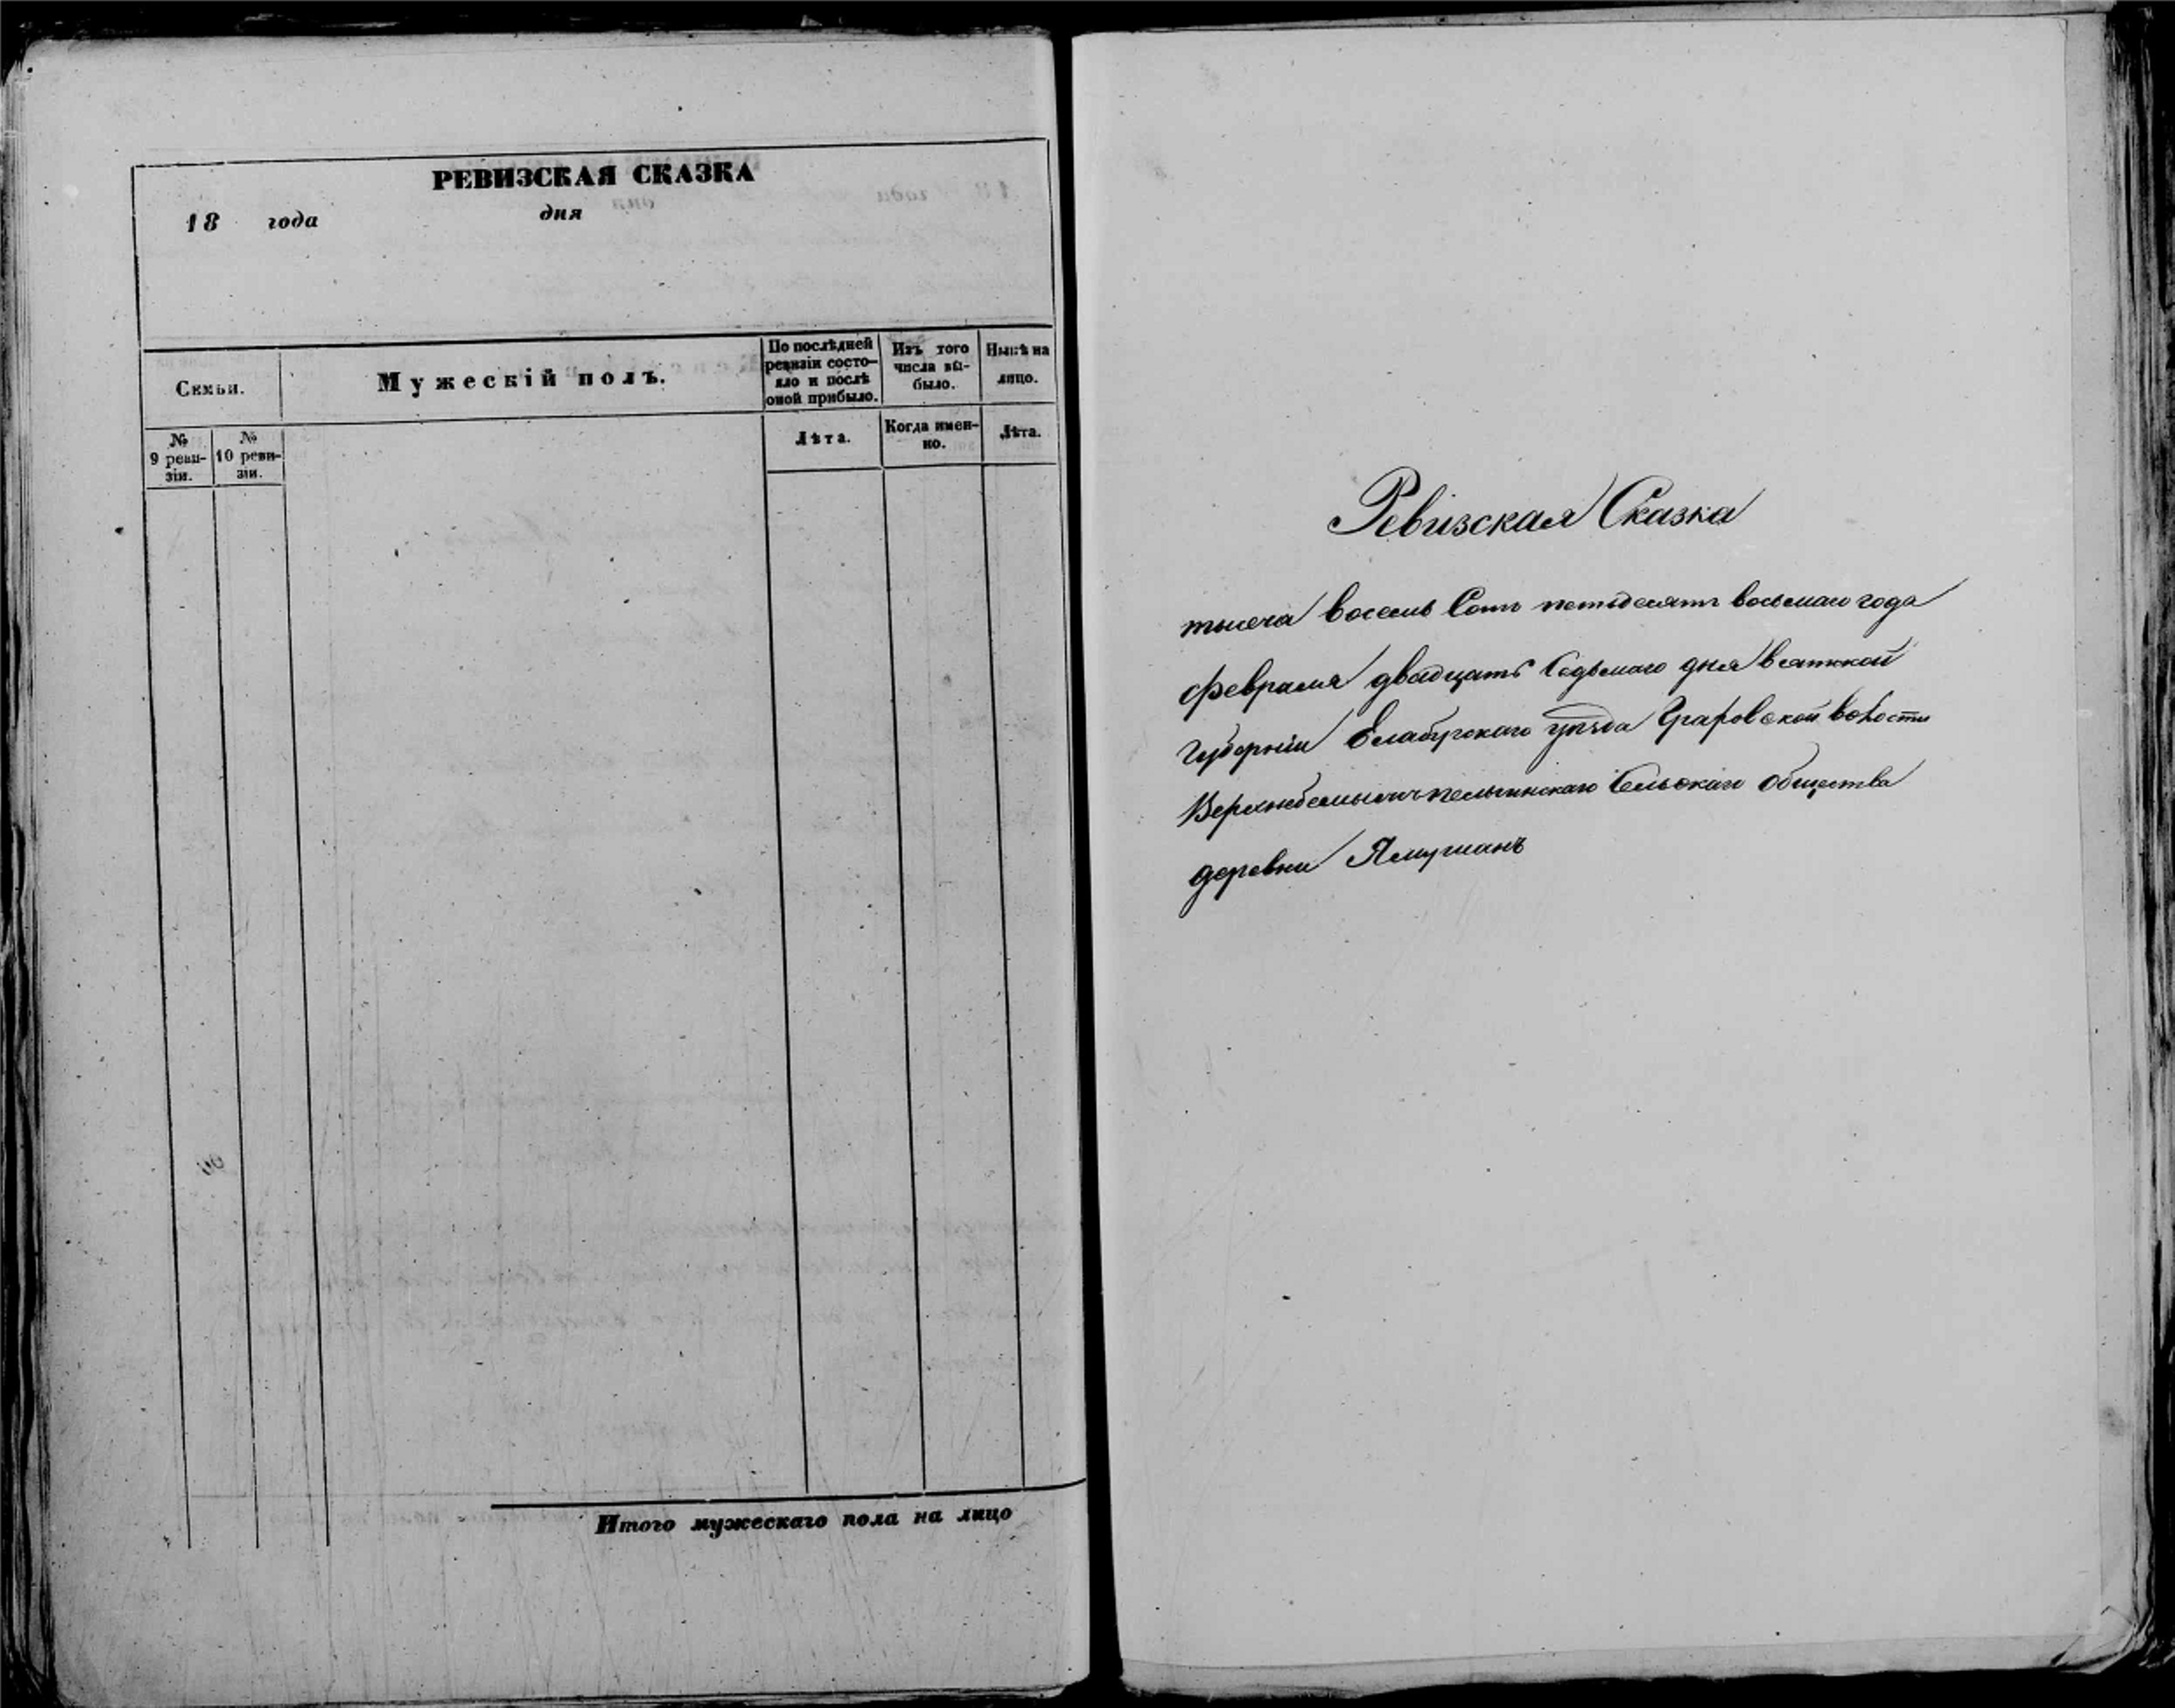 РЕВИЗСКАЯ СКАЗКА
18 года дня
Семьи.
Мужескій полъ.
По послѣдней ревизіи состо-
яло и послѣ
оной прибыло.
Изъ того
числа вы-
было.
Нынѣ на
лицо.
№
9 реви-
зіи.
№
10 реви-
зіи.
Лѣта.
Когда имен-
но.
Лѣта.
Итого мужескаго пола на лицо
Ревизская Сказка
тысеча восемь Сотъ петьдесятъ восьмаго года
февраля двадцать Седьмаго дня вятской
Губерніи Елабугскаго уѣзда Граховской волости
Сельскаго общества
деревни Ямушанъ